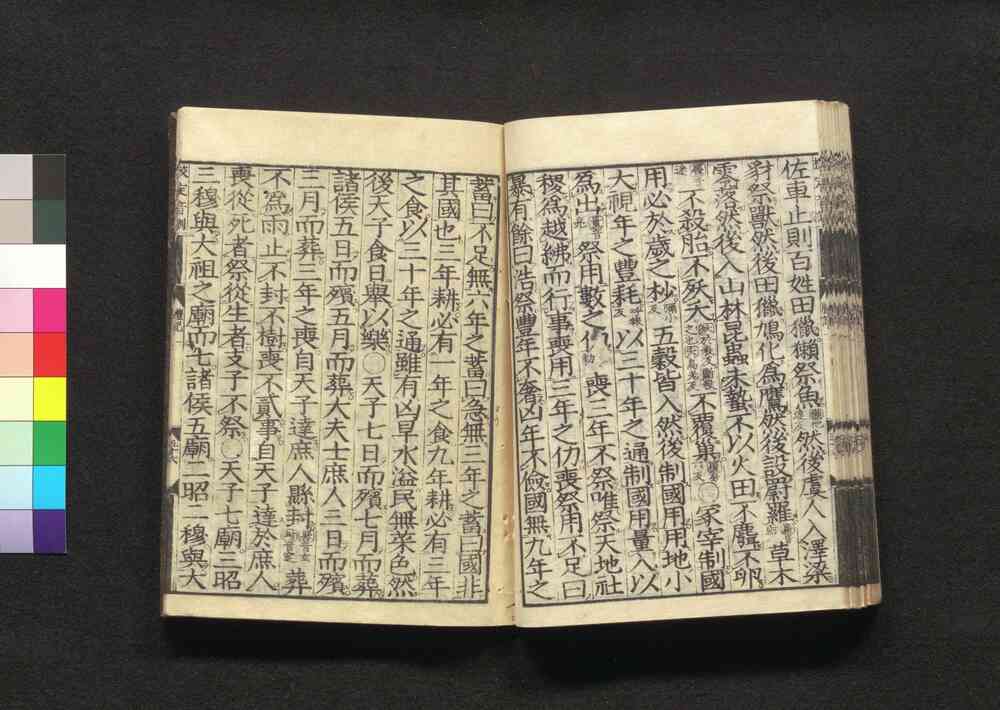 佐車止則百姓田獵獺祭魚然後虞人入澤梁
豺祭獸然後田獵鳩化為鷹然後設罻羅草木
零落然後入山林昆蟲未蟄不以火田不麛不卵
不殺胎不殀夭不覆巢〇冢宰制國
用必於歲之杪五穀皆入然後制國用用地小
大視年之豐耗以三十年之通制國用量入以
為出祭用數之仂喪三年不祭唯祭天地社
稷為越紼而行事喪用三年之仂喪祭用不足曰
暴有餘曰浩祭豐年不奢凶年不儉國無九年之
蓄曰不足無六年之蓄曰急無三年之蓄曰國非
其國也三年耕必有一年之食九年耕必有三年
之食以三十年之通雖有凶旱水溢民無菜色然
後天子食日舉以樂〇天子七日而殯七月而葬
諸侯五日而殯五月而葬大夫士庶人三日而殯
三月而葬三年之喪自天子達庶人縣封葬
不為雨止不封不樹喪不貳事自天子達於庶人
喪從死者祭從生者支子不祭〇天子七廟三昭
三穆與大祖之廟而七諸侯五廟二昭二穆與大